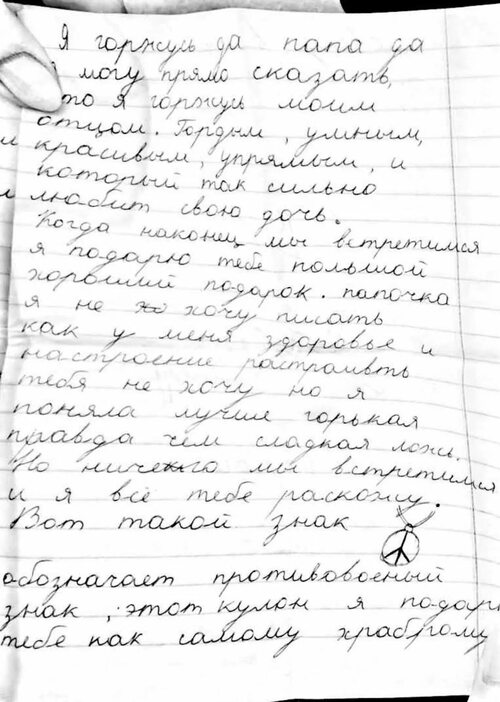 Я горжусь да папа да
я могу прямо сказать,
что я горжусь моим
отцом. Гордым, умным,
красивым, упрямым, и
который так сильно
любит свою дочь.
Когда наконец мы встретимся
я подарю тебе польшой
хороший подарок. папочка
я не хочу писать
как у меня здоровье и
настроение растраивть
тебя не хочу но я
поняла лучше горькая
правда чем сладкая ложь.
Но ничего мы встретимся
и я всё тебе раскожу.
Вот такой знак
обозначает противовоеный
знак, этот кулон я подарю
тебе как самому храброму